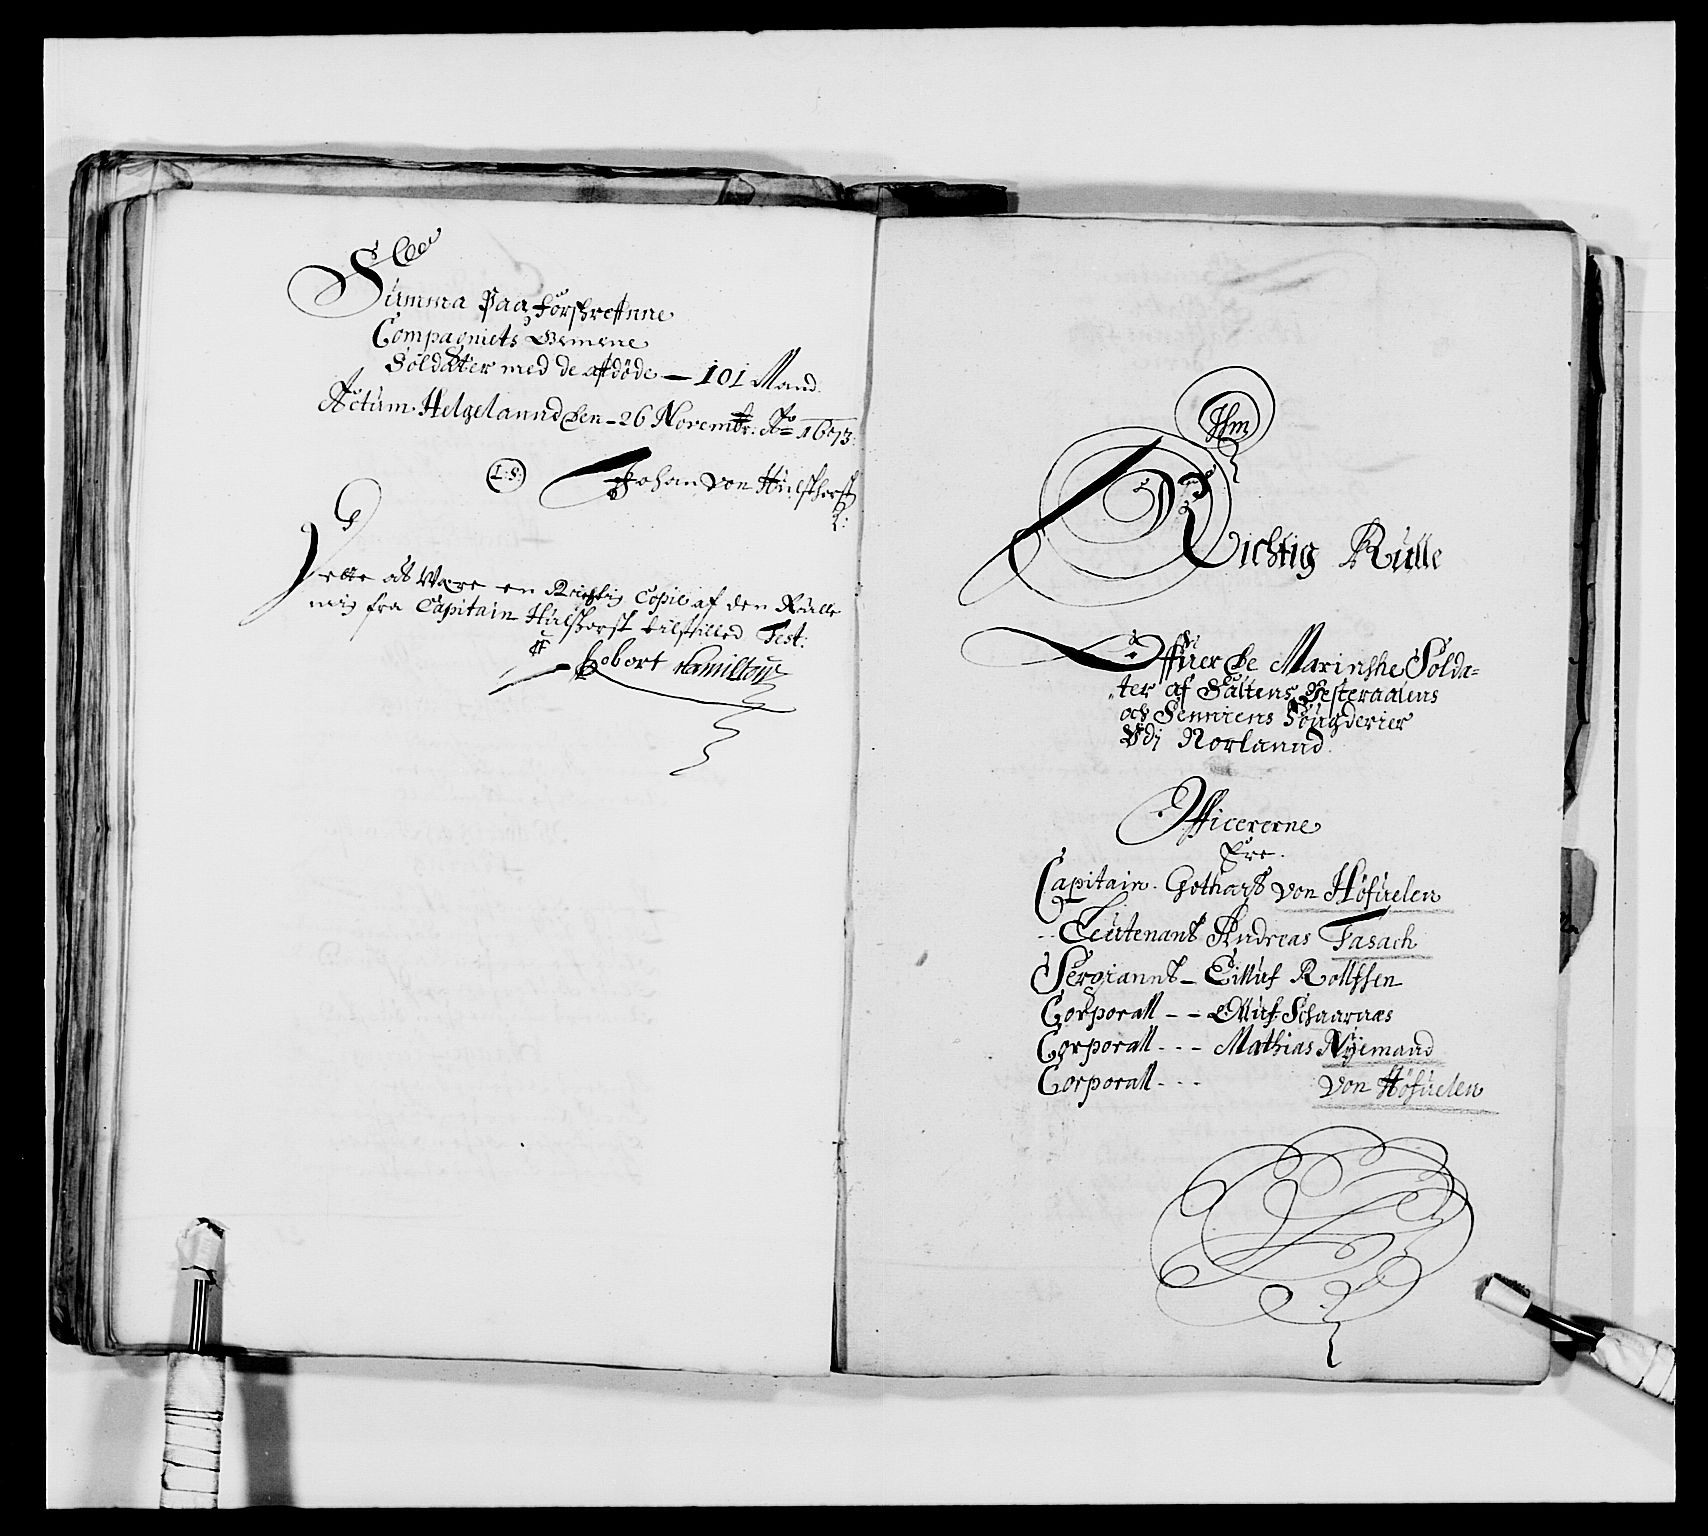 Summa Paa Forskrefnne
Compagniets Gemene
Soldater med de afdöde — 101 Mand.
Actum Helgelannd den - 26 Novembr: Ao 1673:
L:S: Johan von Hülsthorst
Dette at Være en Richtig Copie af den Rulle
mig fra Capitain Hülshorst tilstilled Test:
Robort Hamilton
Richtig Rulle
Offuer de Marinske Solda-
ter af Saltens, Vesteraalens
och Senniens Fougderier
Udj Norlannd.
Officererne
Ere.
Capitain. Gothart von Höfuelen
Leutenant Andreas Fasach
Sergiannt - Eilluf Rollfsen
Corporall - - Olluf Schaanæs
Corporall - - - Mathias Nÿemand
Corporall - - - von Höfuelen